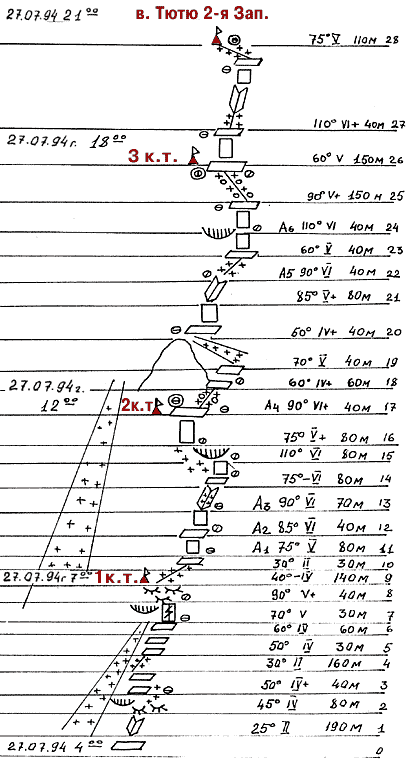 27.07.94 21⁰⁰ в. Тютю 2-я Зап.
75° V 110м 28
110° VI+ 40м 27
27.07.94г. 18⁰⁰
3 к.т. 60° V 150м 26
90° V+ 150м 25
A6 110° VI 40м 24
60° V 40м 23
A5 90° VI 40м 22
85° V+ 80м 21
60° IV+ 40м 20
70° V 40м 19
27.07.94г. 60° IV+ 60м 18
12⁰⁰ 2к.т A4 90° VI+ 40м 17
75° V+ 80м 16
110° VI 80м 15
75°-VI 80м 14
A3 90° VI 70м 13
A2 85° VI 40м 12
A1 75° V 80м 11
30° II 30м 10
27.07.94г 7⁰⁰ 1к.т. 40°-IV 140м 9
90° V+ 40м 8
70° V 30м 7
60° IV 60м 6
50° IV 30м 5
30° II 160м 4
50° IV+ 40м 3
45° IV 80м 2
25° II 190м 1
27.07.94 4⁰⁰ 0